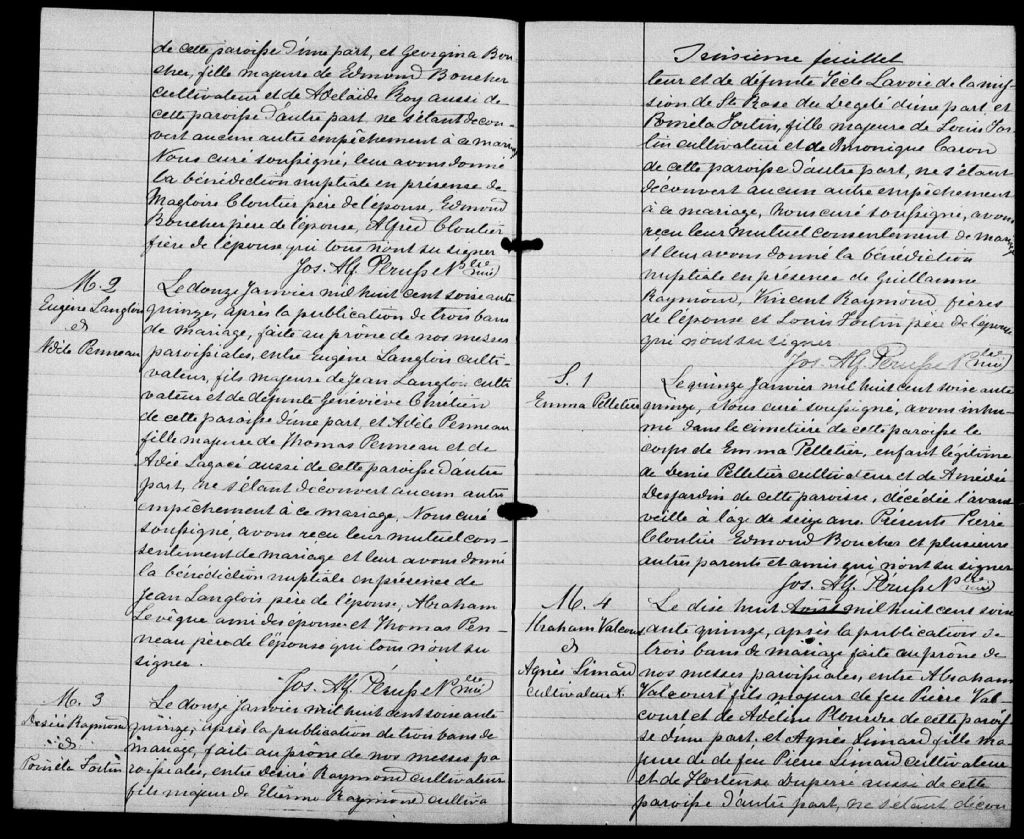 de cette paroisse d'une part, et Georgina Bou
cher, fille majeure de Edmond Boucher
cultivateur et de Adelaïde Roy aussi de
cette paroisse d'autre part ne s'étant décou-
vert aucun autre empêchement à ce mariage
Nous curé soussigné, leur avons donné
la bénédiction nuptiale en présence de
Magloire Cloutier père de l'épouse, Edmond
Boucher père de l'épouse, Alfred Cloutier
frère de l'épouse qui tous n'ont su signer
Jos. Alf. Pérusse Ptre
M. 2
Eugène Langlois
et
Adèle Penneau
Le douze Janvier mil huit cent soixante
quinze, après la publication de trois bans
de mariage, faite au prône de nos messes
paroissiales, entre Eugène Langlois culti-
vateur, fils majeure de Jean Langlois culti
vateur et de défunte Geneviève Chrétien
de cette paroisse d'une part, et Adèle Penneau
fille majeure de Thomas Penneau et de
Adée Lagacé aussi de cette paroisse d'autre
part, ne s'étant découvert aucun autre
empêchement à ce mariage, Nous curé
soussigné, avons reçu leur mutuel con-
sentiment de mariage et leur avons donné
la bénédiction nuptiale en présence de
Jean Langlois père de l'épouse, Abraham
Levêque ami des epouse et Thomas Pen-
neau père de l'épouse qui tous n'ont su
signer.
Jos. Alf. Pérusse Ptre
M. 3
Desiré Raymond
et
Poméla Fortin
Le douze Janvier mil huit cent soixante
quinze, après la publication de trois bans de
mariage, faite au prône de nos messes pa
roissiales, entre Desiré Raymond cultivateur
fils majeur de Etienne Raymond cultiva
Troisième feuillet
teur et de défunte Tècle Lavoie de la mis
sion de Ste Rose du Degelé d'une part et
Poméla Fortin, fille majeure de Louis For
tin cultivateur et de Monique Caron
de cette paroisse d'autre part, ne s'étant
découvert aucun autre empêchement
à ce mariage, Nous curé soussigné, avons
reçu leur mutuel consentement de mariage
et leur avons donné la bénédiction
nuptiale en présence de Guillaume
Raymond, Vincent Raymond frères
de l'épouse et Louis Fortin père de l'épouse
qui n'ont su signer
Jos. Alf. Pérusse Ptre
S. 1
Emma Pelletier
Le quinze Janvier mil huit cent soixante
quinze, Nous curé soussigné, avons inhu-
mé dans le cimetière de cette paroisse le
corps de Emma Pelletier, enfant légitime
de Denis Pelletier cultivateur et de Amédée
Desjardin de cette paroisse, décédée l'avant
veille à l'âge de seize ans. Présents Pierre
Cloutier Edmond Boucher et plusieurs
autres parents et amis qui n'ont su signer
Jos. Alf. Pérusse Ptre
M. 4
Abraham Valcourt
et
Agnès Simard
cultivateur
Le dix huit mil huit cent soix
ante quinze, après la publication de
trois bans de mariage faite au prône de
nos messes paroissiales, entre Abraham
Valcourt fils majeur de feu Pierre Val
court et de Adeline Plourde de cette parois
se d'une part, et Agnès Simard fille ma
jeure de feu Pierre Simard cultivateur
et de Hortense Duperré aussi de cette
paroisse d'autre part, ne s'étant décou